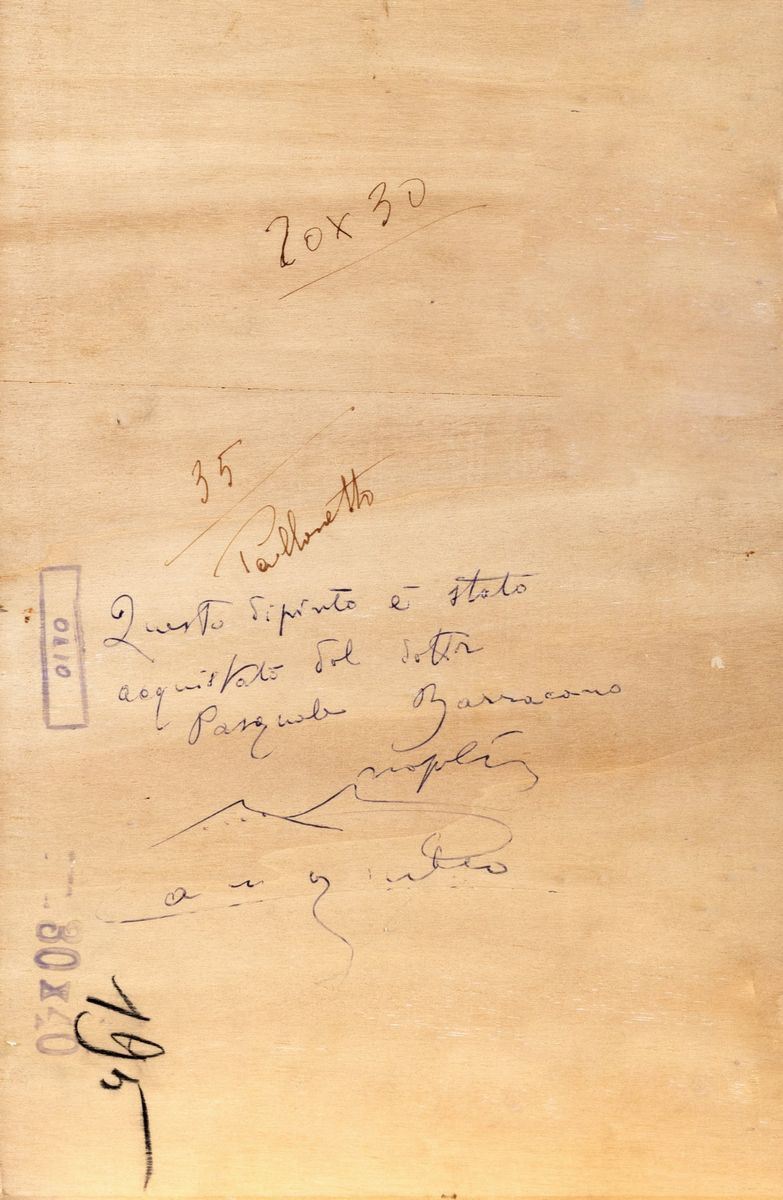 20 x 30
35
Pallonetto
Questo dipinto è stato
acquistato dal dottr
Pasquale Barracano
Napoli
OLIO
30x40